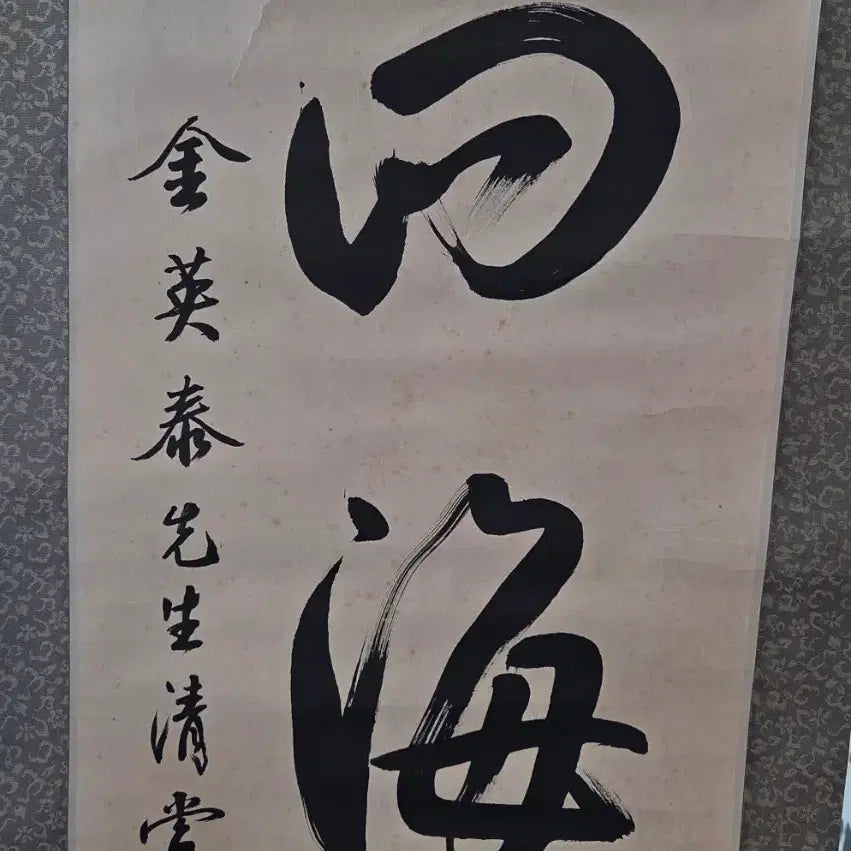 四海
金英泰先生清